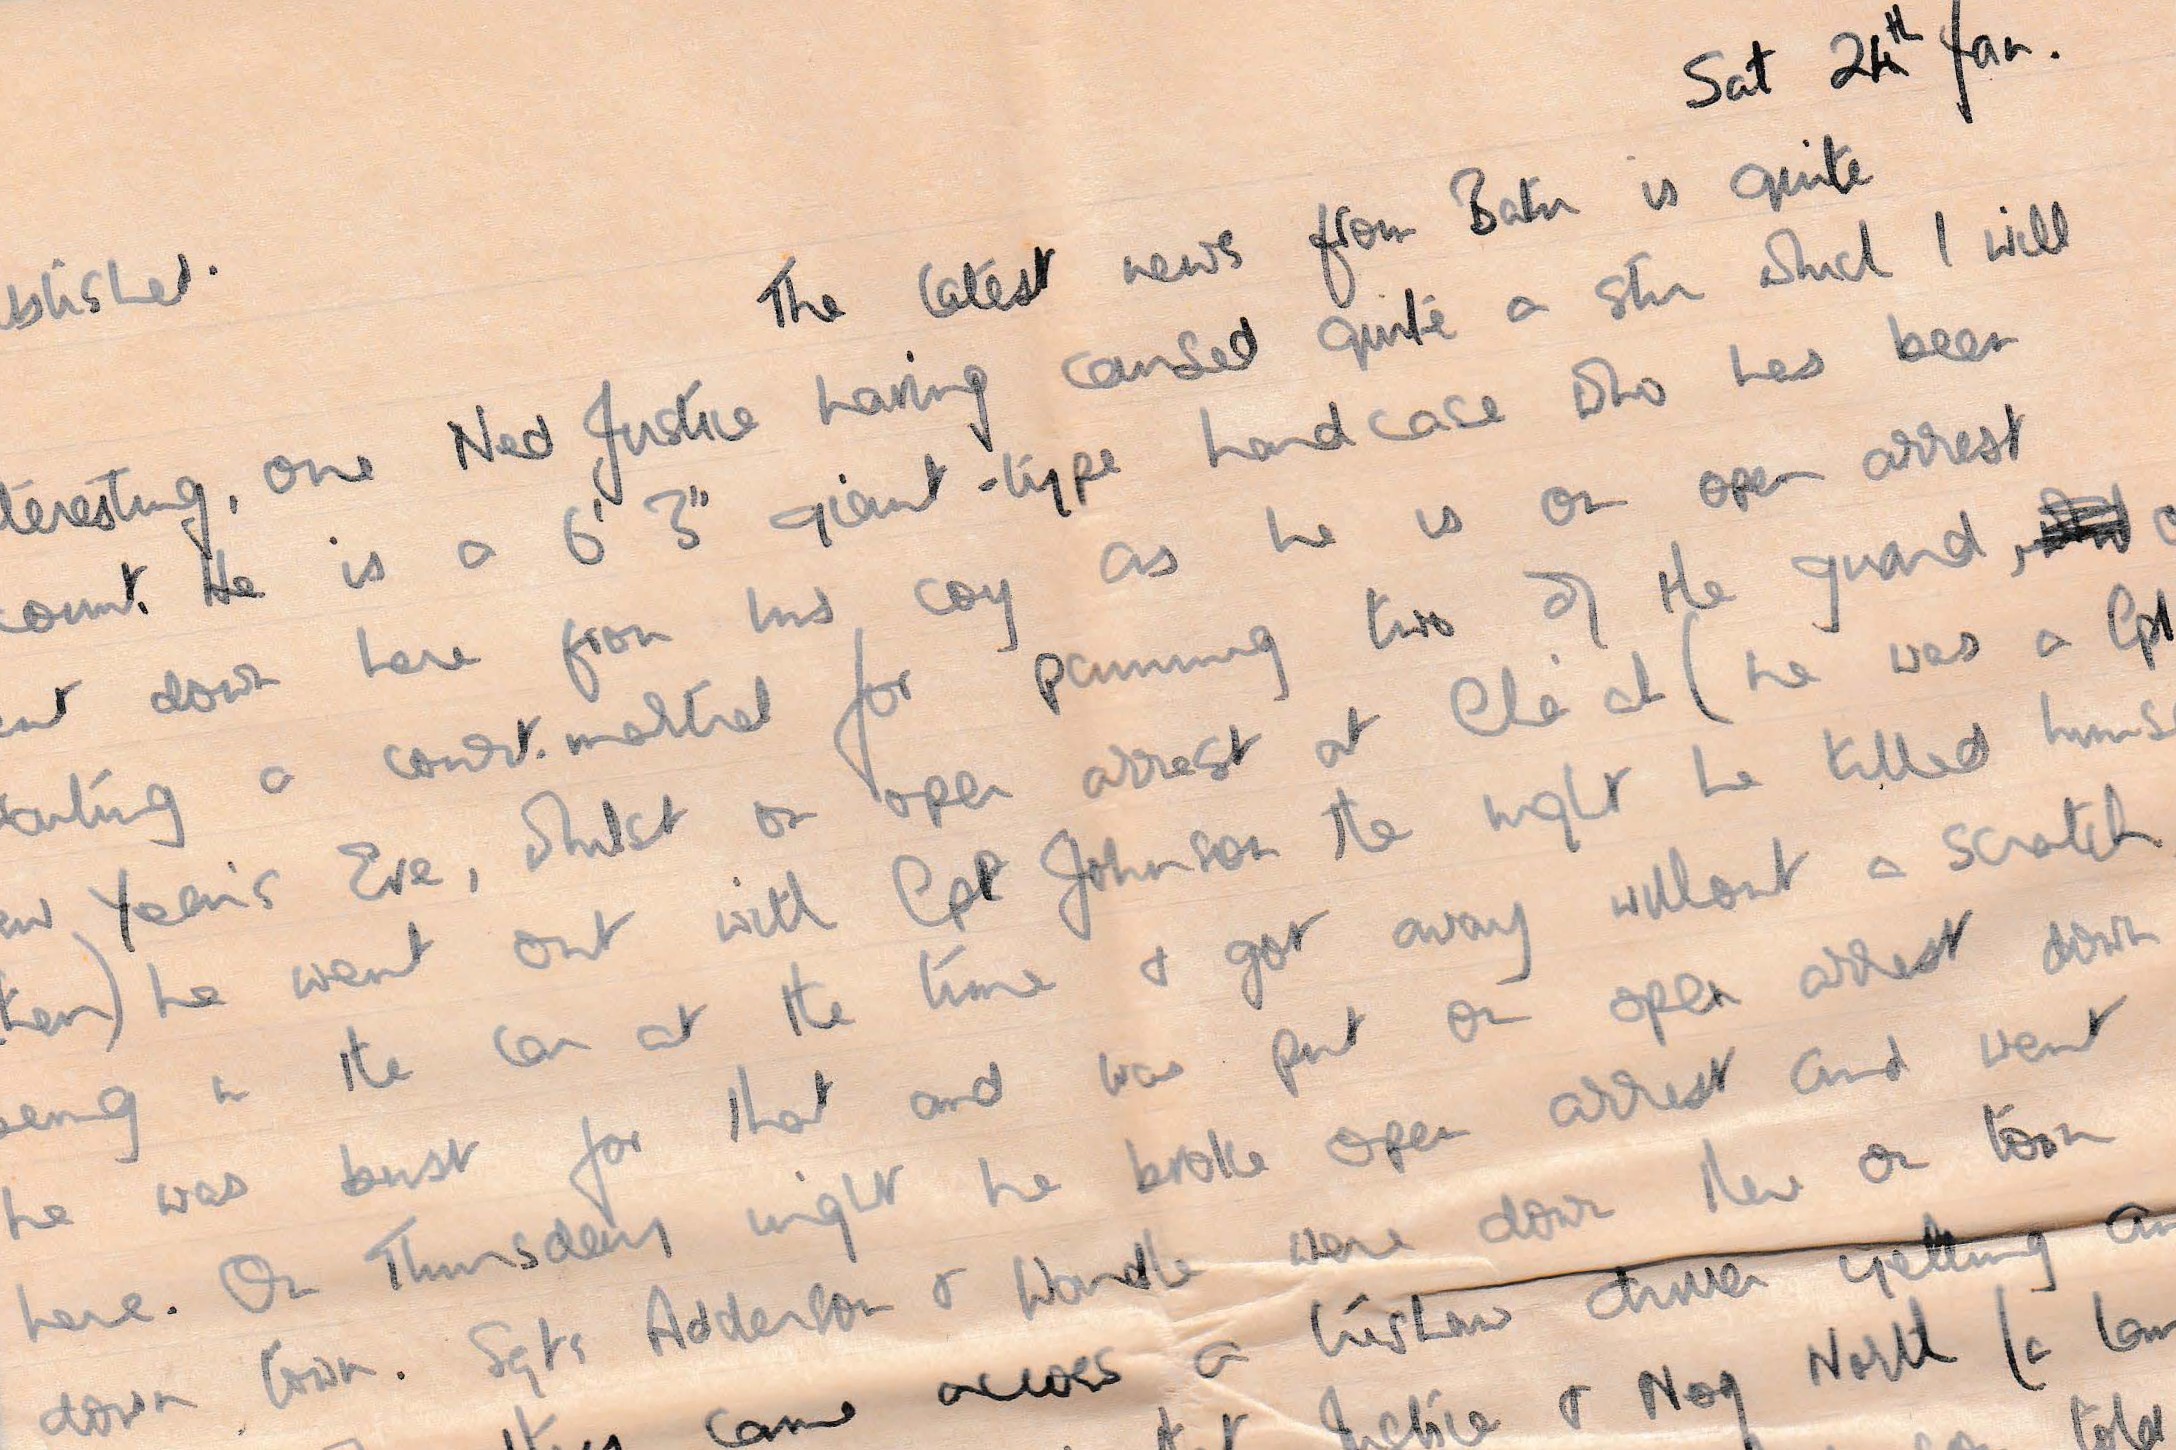 Sat 24th Jan.
blished. The latest news from Batn is quite
teresting, one Ned Justice having caused quite a stir which I will
count. He is a 6' 3" giant-type hardcase who has been
nt down here from his coy as he is on open arrest
aiting a court-martial for panning two of the guard,
ew Year's Eve, whilst on open arrest at (he was a Cpl
then) he went out with Cpl Johnson the night he killed himse
being in the car at the time & got away without a scratch
he was bust for that and was put on open arrest down
here. On Thursday night he broke open arrest and went
down town. Sgts Adderson & Wardle were down there on town
they came across a trishaw driver yelling an
that Justice & Nog North (a lan
told